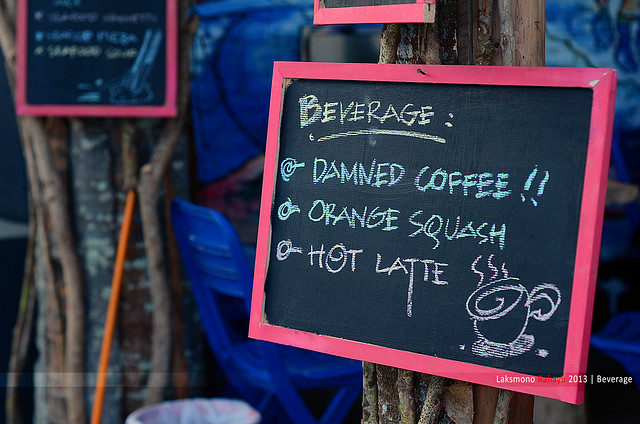 BEVERAGE :
DAMNED COFFEE !!
ORANGE SQUASH
HOT LATTE
Laksmono 2013 | Beverage